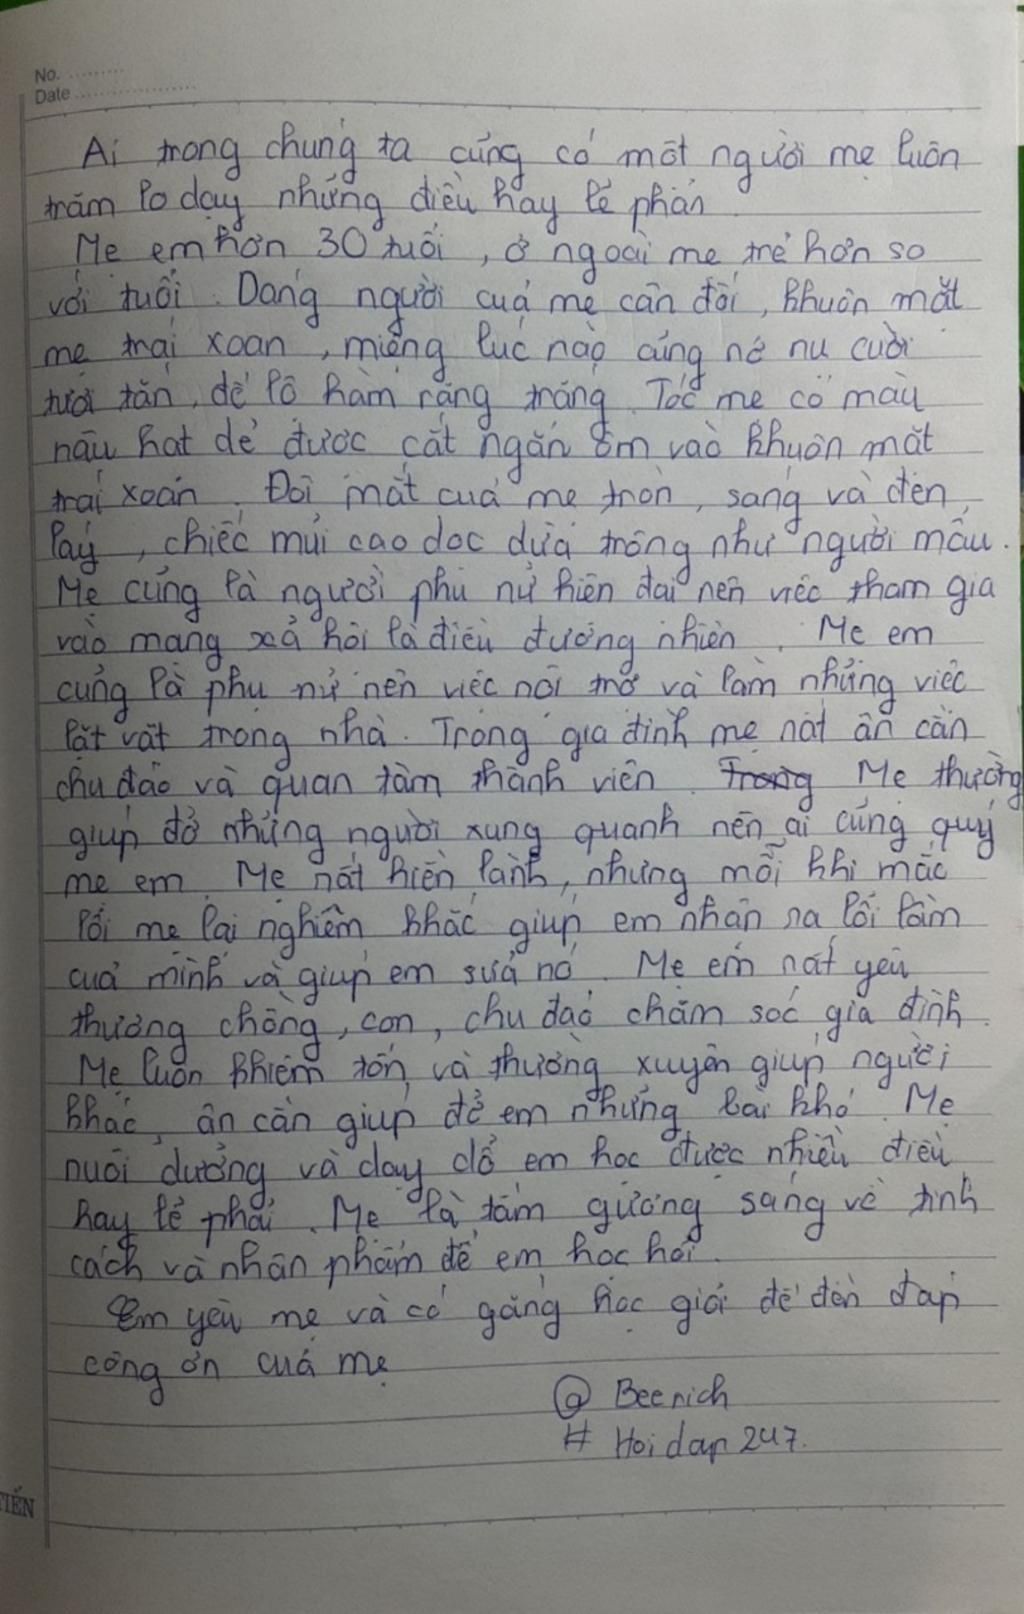 No. ........
Date ................
Ai trong chúng ta cũng có một người mẹ luôn
trăm lo dạy những điều hay lẽ phải
Mẹ em hơn 30 tuổi, ở ngoài mẹ trẻ hơn so
với tuổi. Dáng người của mẹ cân đối, khuôn mặt
mẹ trái xoan, miệng lúc nào cũng nở nụ cười
tươi tắn, để lộ hàm răng trắng. Tóc mẹ có màu
nâu hạt dẻ được cắt ngắn ôm vào khuôn mặt
trái xoan. Đôi mắt của mẹ tròn, sáng và đen
láy, chiếc mũi cao dọc dừa trông như người mẫu.
Mẹ cũng là người phụ nữ hiện đại nên việc tham gia
vào mạng xã hội là điều đương nhiên. Mẹ em
cũng là phụ nữ nên việc nội trợ và làm những việc
lặt vặt trong nhà. Trong gia đình mẹ rất ân cần
chu đáo và quan tâm thành viên. Trong Mẹ thường
giúp đỡ những người xung quanh nên ai cũng quý
mẹ em. Mẹ rất hiền lành, nhưng mỗi khi mắc
lỗi mẹ lại nghiêm khắc giúp em nhận ra lỗi lầm
của mình và giúp em sửa nó. Mẹ em rất yêu
thương chồng, con, chu đáo chăm sóc gia đình.
Mẹ luôn khiêm tốn và thường xuyên giúp người
khác, ân cần giúp đỡ em những bài khó. Mẹ
nuôi dưỡng và dạy dỗ em học được nhiều điều
hay lẽ phải. Mẹ là tấm gương sáng về tính
cách và nhân phẩm để em học hỏi.
Em yêu mẹ và cố gắng học giỏi để đền đáp
công ơn của mẹ
@ Beerich
# Hoidap247.
TIẾN